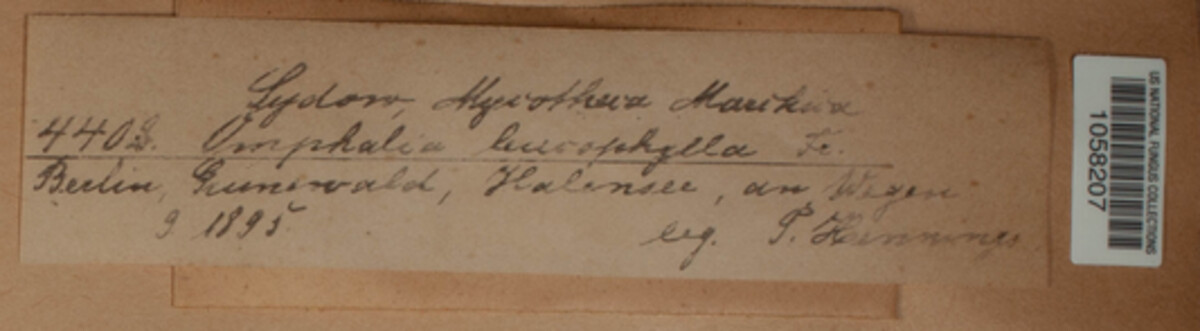 Sydow, Mycotheca Marchica
4402. Omphalia leucophylla Fr.
Berlin, Grunewald, Halensee, an Wegen
9 1895 leg. P. Hennings
US NATIONAL FUNGUS COLLECTIONS
1058207